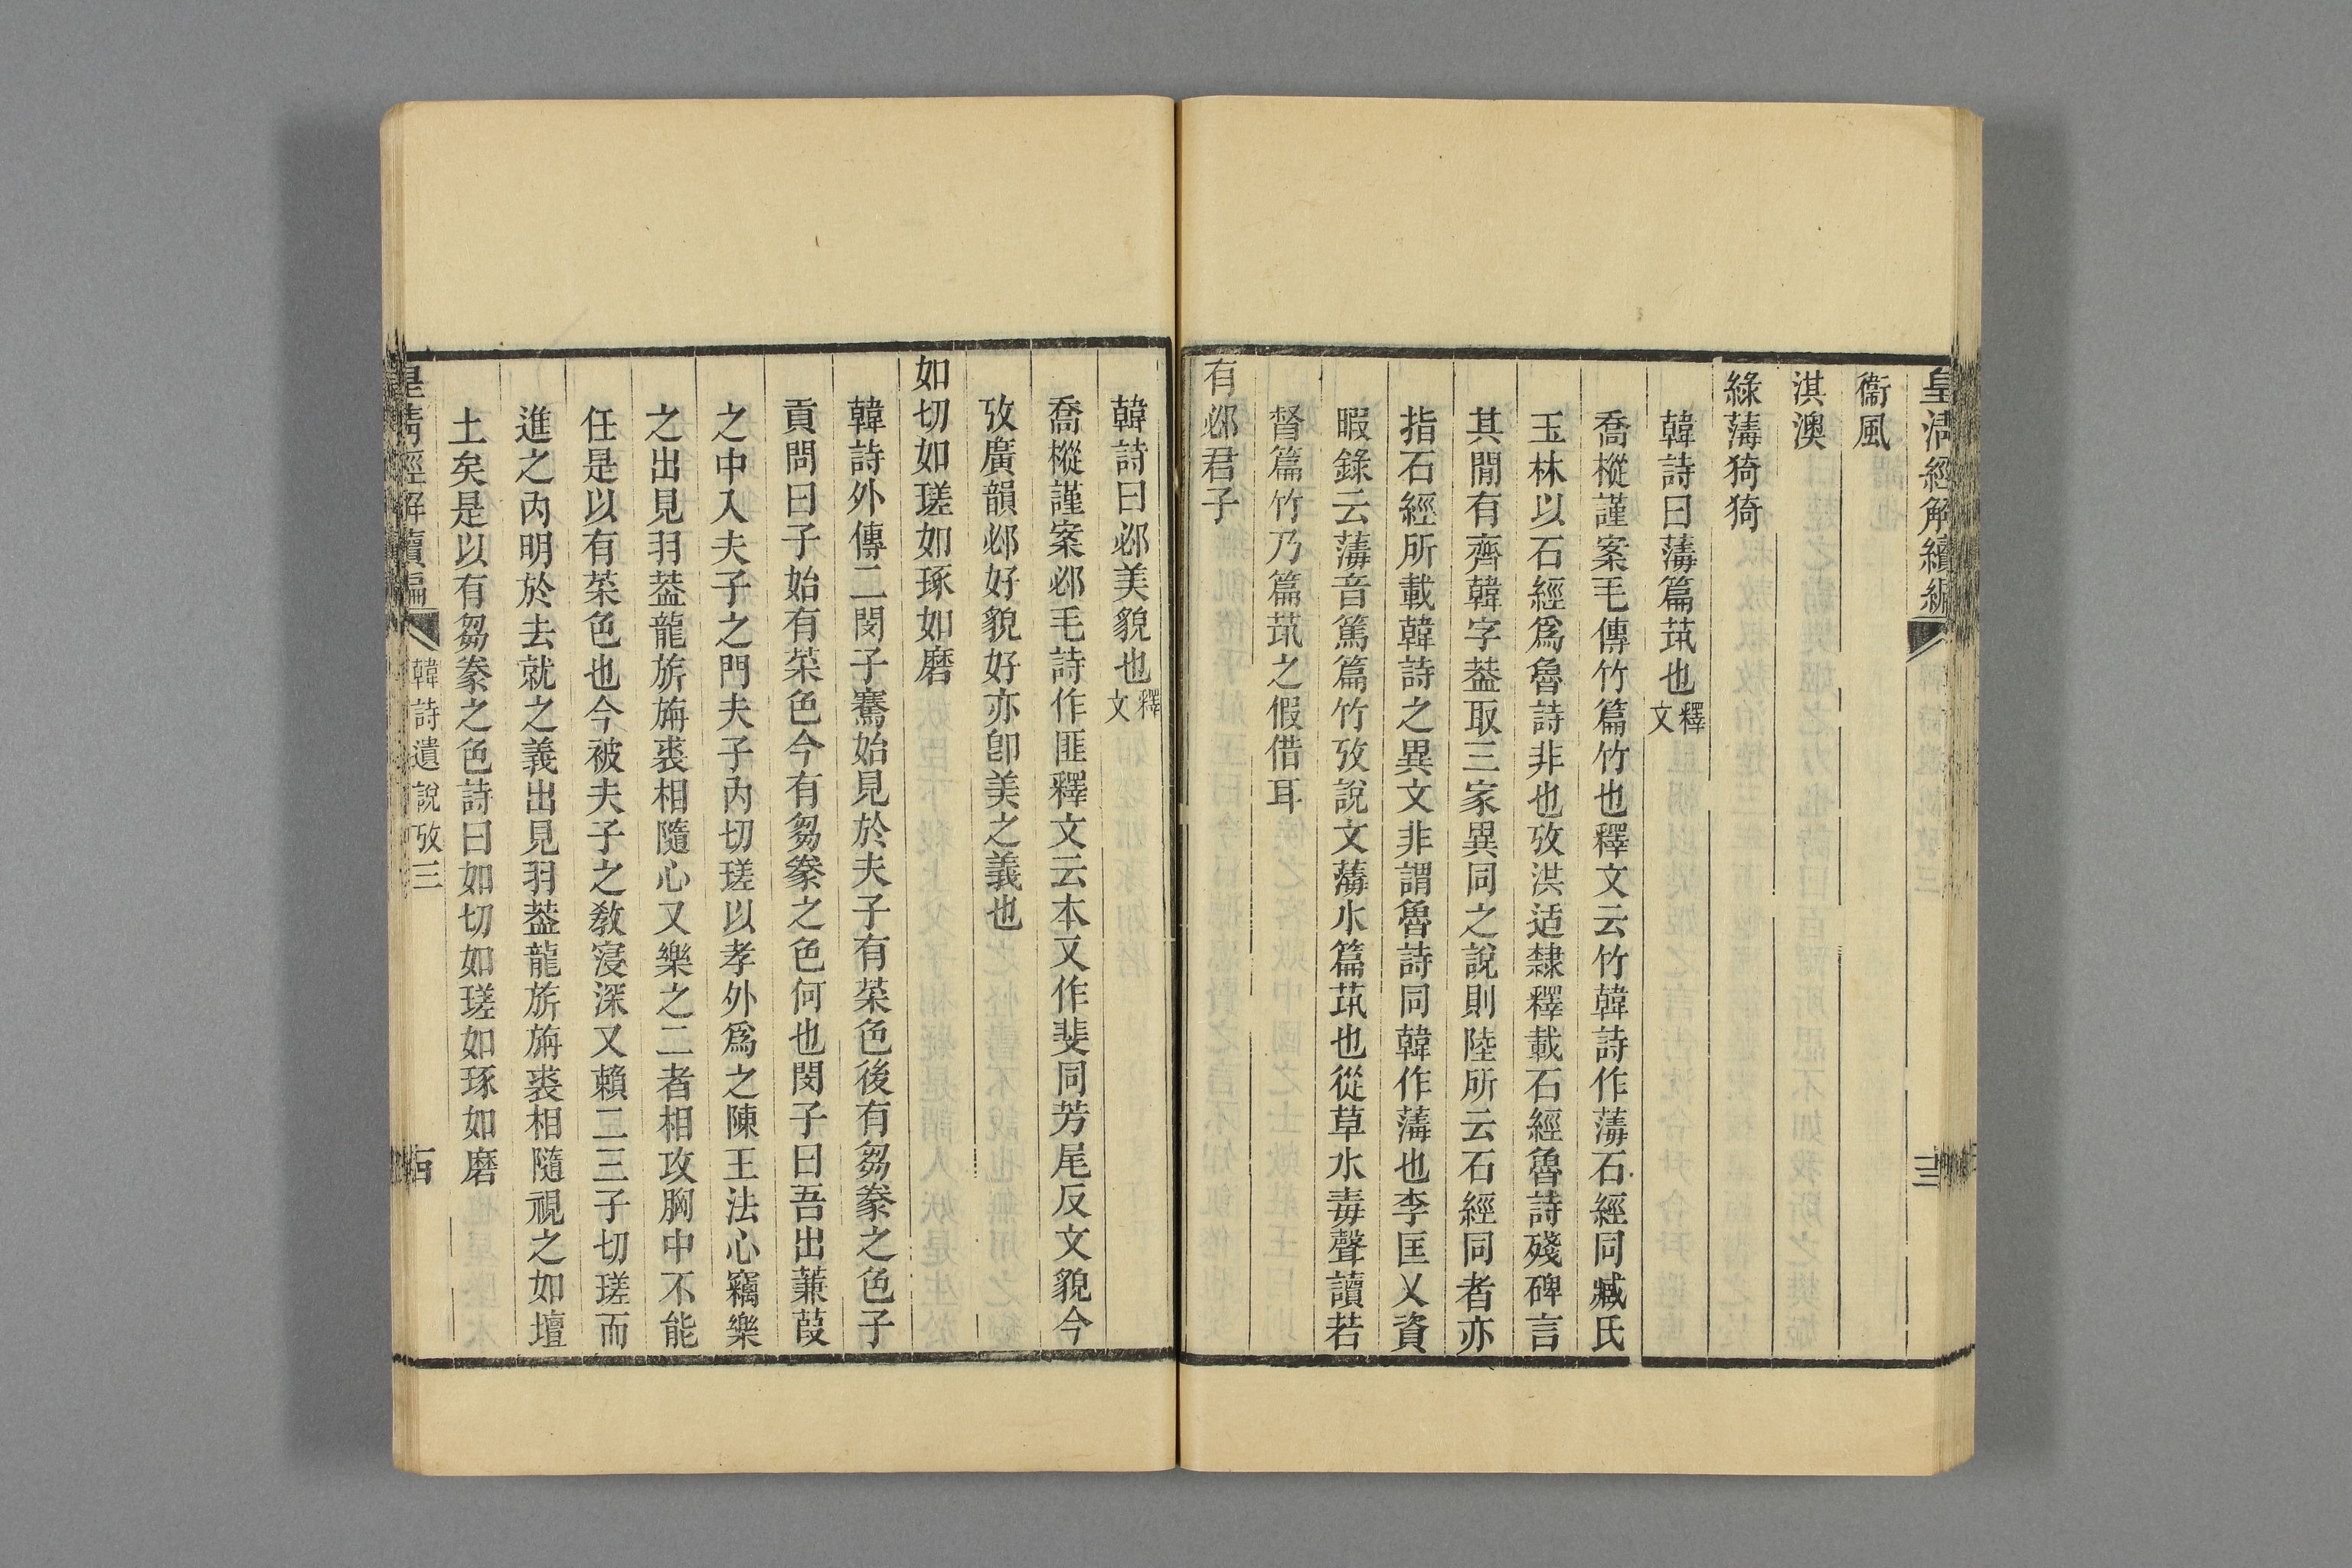 皇清經解續編
衞風
淇澳
綠薄猗猗
韓詩曰薄篇茿也釋文
喬樅謹案毛傳竹篇竹也釋文云竹韓詩作薄石經同臧氏
玉林以石經爲魯詩非也攷洪适隸釋載石經魯詩殘碑言
其閒有齊韓字葢取三家異同之說則陸所云石經同者亦
指石經所載韓詩之異文非謂魯詩同韓作薄也李匡乂資
暇錄云薄音篤篇竹攷說文薄水篇茿也從草水毒聲讀若
督篇竹乃篇茿之假借耳
有邲君子
韓詩曰邲美貌也釋文
喬樅謹案邲毛詩作匪釋文云本又作斐同芳尾反文貌今
攷廣韻邲好貌好亦卽美之義也
如切如瑳如琢如磨
韓詩外傳二閔子騫始見於夫子有菜色後有芻豢之色子
貢問曰子始有菜色今有芻豢之色何也閔子曰吾出蒹葭
之中入夫子之門夫子內切瑳以孝外爲之陳王法心竊樂
之出見羽葢龍旂旃裘相隨心又樂之二者相攻胸中不能
任是以有菜色也今被夫子之敎寖深又賴二三子切瑳而
進之內明於去就之義出見羽葢龍旂旃裘相隨視之如壇
土矣是以有芻豢之色詩曰如切如瑳如琢如磨
皇清經解續編 韓詩遺說攷三